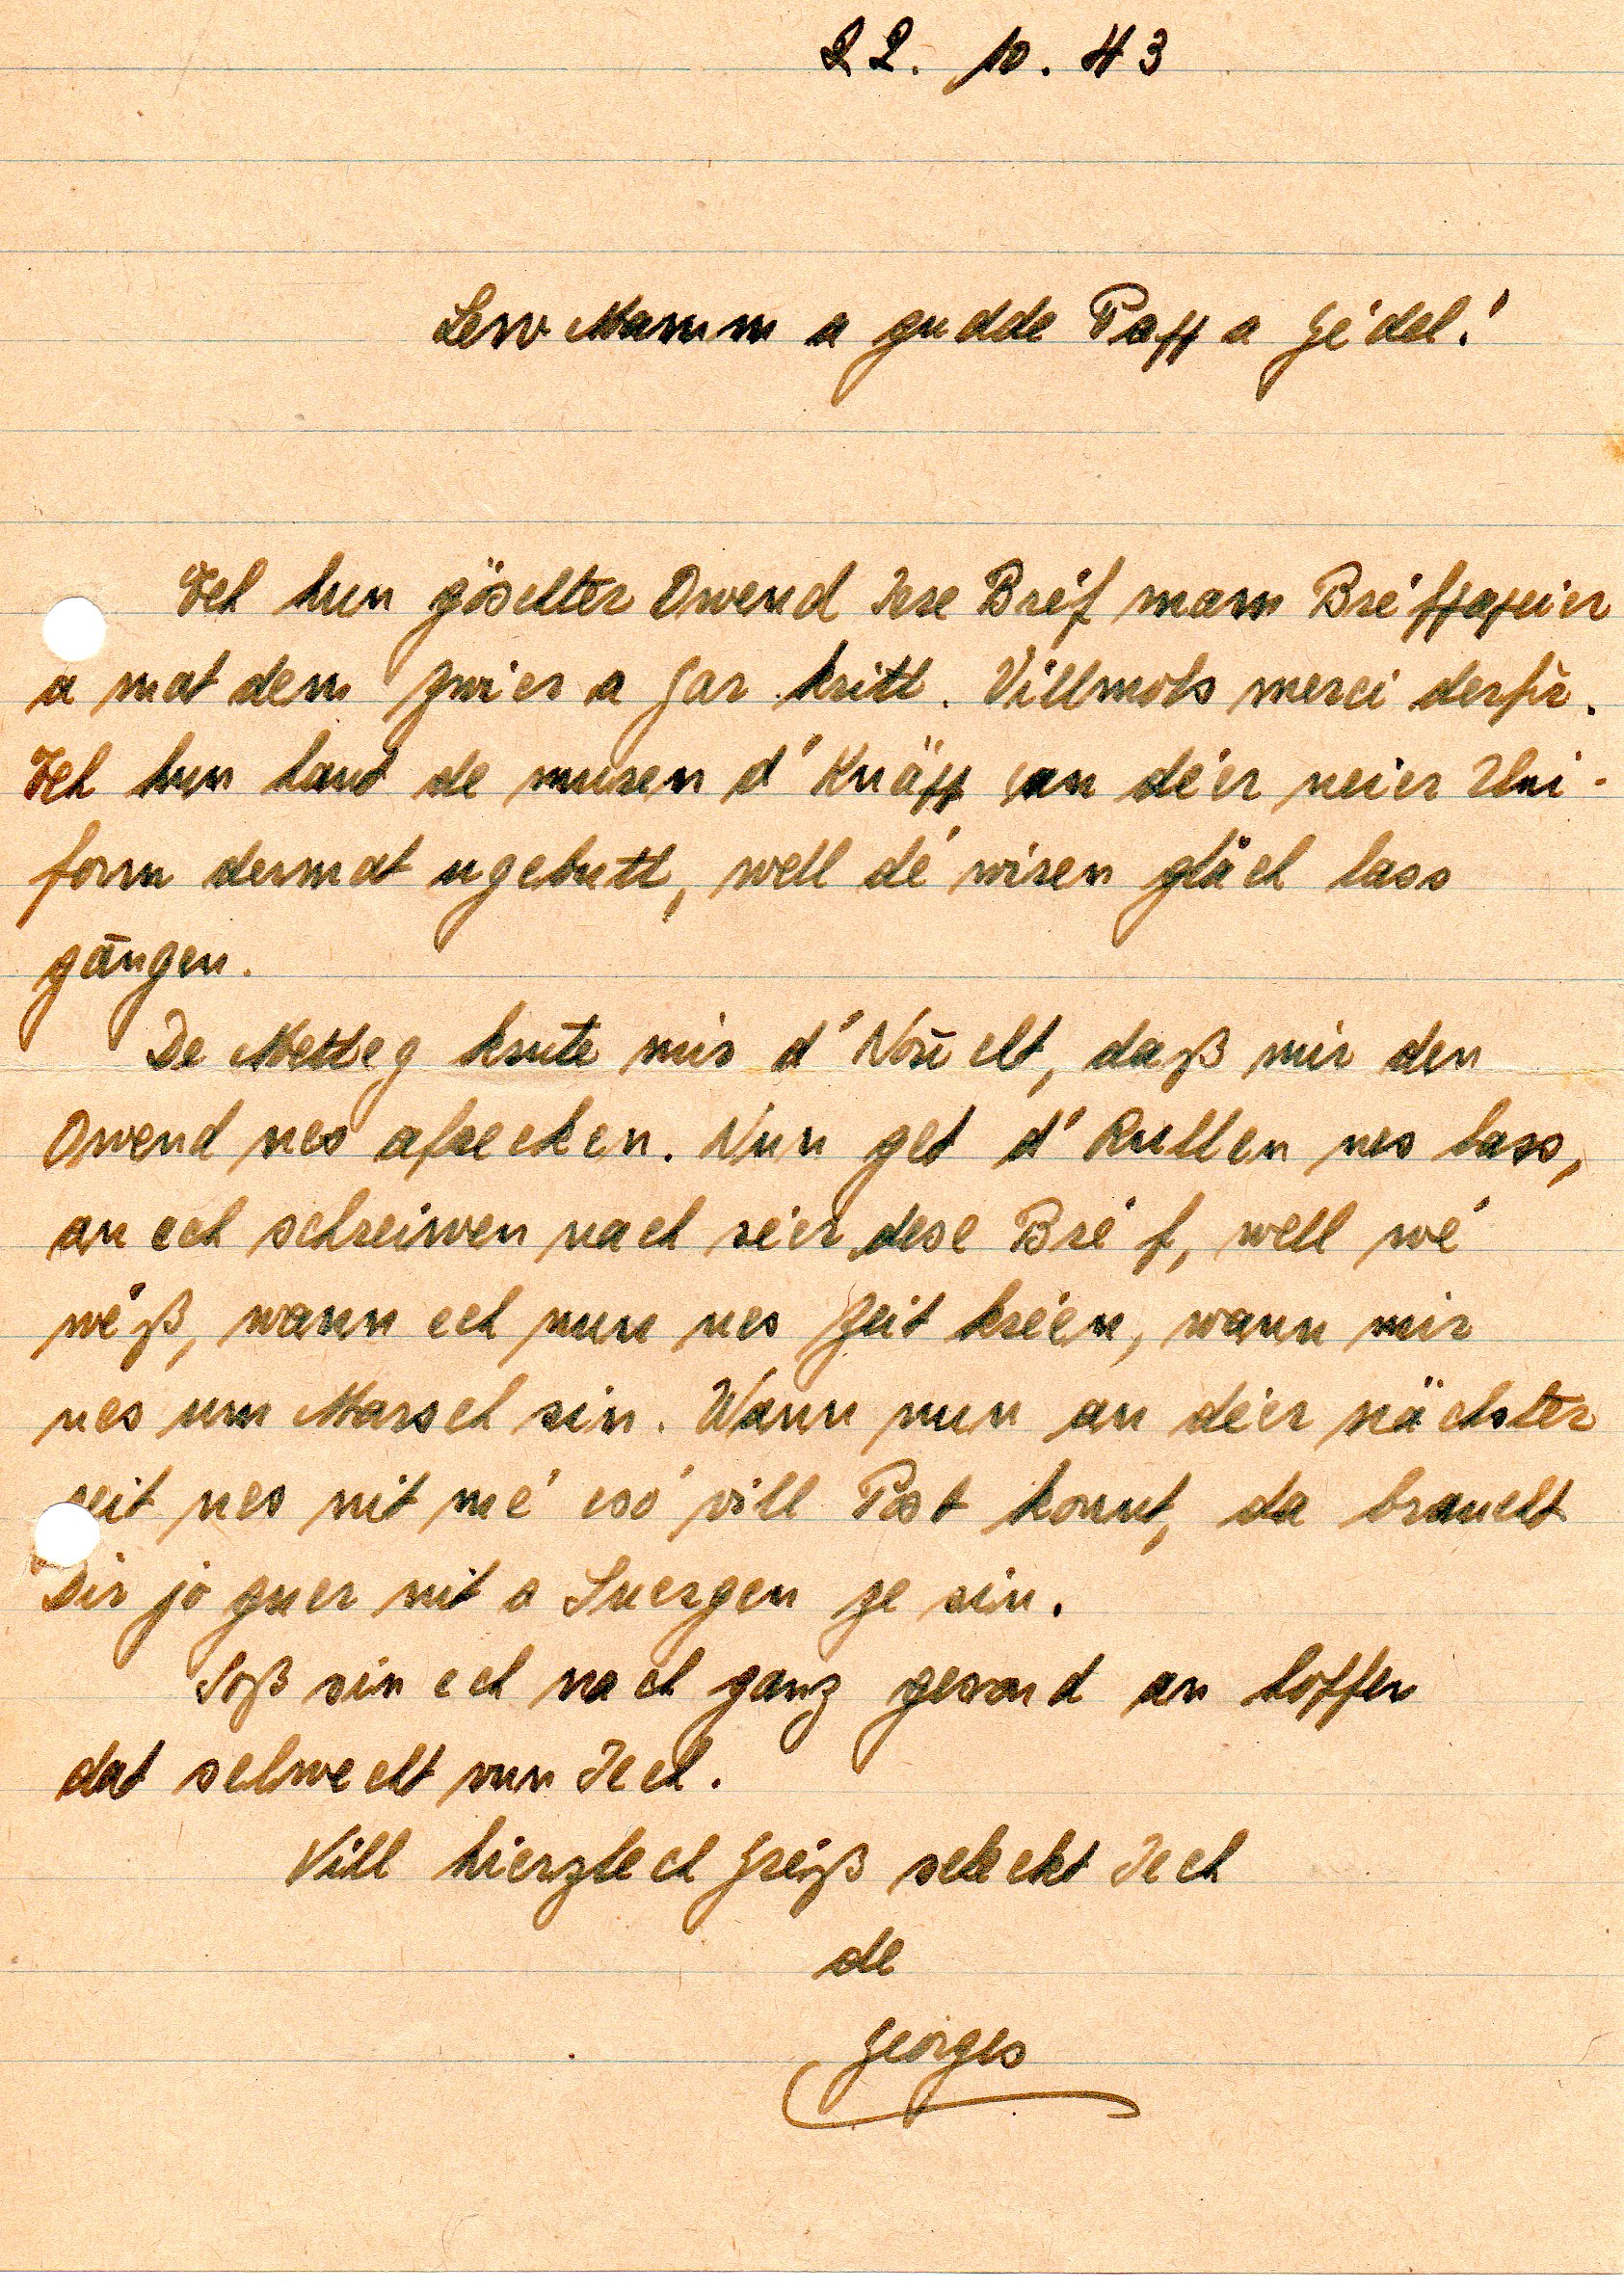 22. 10. 43
Lew Mamm a gudde Papp a Gédel!
Ech hun göschter Owend Iere Bréf mam Bréfpapeier
a mat dem Zwier a Gar kritt. Villmols merci derfir.
Ech hun haut de muren d' Knäpp an déer neier Uni-
form dermat ugebutt, well dé wiren gläch lass
gängen.
De Metteg krute mir d' Noricht, daß mir den
Owend nes afrecken. Nun get d' Rullen nes lass,
an ech schreiwen nach séier dese Bréf, well wé
wéß, wann ech nun nes Zeit kréen, wann mir
nes um Marsch sin. Wann nun an déer nächster
Zeit nes nit mé esó vill Post kommt, da braucht
Dir jo guer nit a Suergen ze sin.
Soß sin ech nach ganz gesond an hoffen
dat selwecht vun Iech.
Vill hierzlech Gréiß schéckt Iech
de
Georges